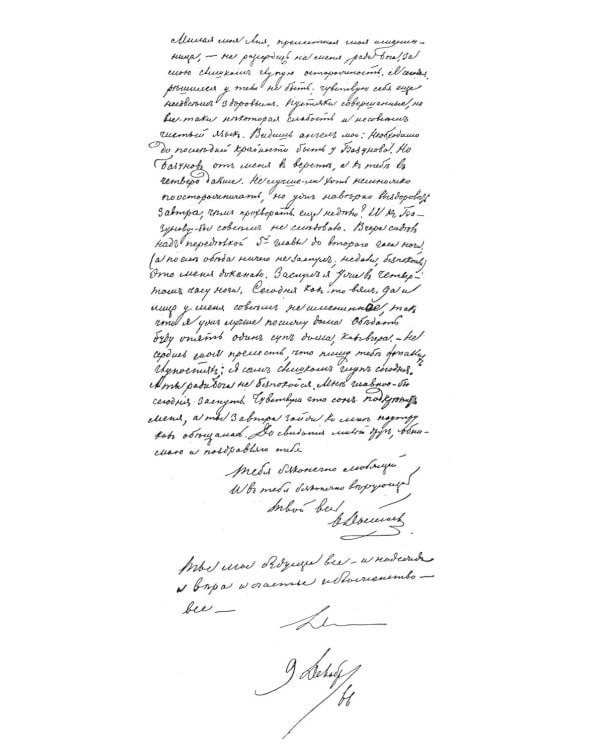 Милая моя Аня, прелестная моя именин-
ница, — не рассердись на меня ради бога за
мою слишком глупую осторожность. Я сегодня
рѣшился у тебя не быть; чувствую себя еще
не совсѣмъ здоровымъ. Пустяки совершенные, но
все таки нѣкоторая слабость и не совсѣмъ
чистый языкъ. Видишь ангелъ мой: Необходимо
до послѣдней крайности быть у Базунова. Но
Базуновъ отъ меня въ верстѣ, а къ тебѣ въ
четверо дальше. Не лучше-ли хоть немножко
поосторожничать, но ужъ навѣрно выздоровѣть
завтра, чѣмъ прохворать еще недѣлю? И къ Ба-
зунову-бы совсѣмъ не слѣдовало. Вчера сидѣлъ
надъ передѣлкой 5й главы до второго часа ночи,
(а послѣ обѣда ничего не заснулъ; недали, безпокоили)
Это меня доконало. Заснулъ я уже въ четвер-
томъ часу ночи. Сегодня какъ-то вялъ, да и
лицо у меня совсѣмъ не именинное, такъ
что я ужъ лучше посижу дома. Обѣдать
буду опять одинъ супъ дома, какъ вчера. — Не
сердись моя прелесть, что пишу тебѣ о такихъ
глупостяхъ: Я самъ слишкомъ глупъ сегодня.
А ты ради бога не безпокойся. Мнѣ главное-бы
сегодня заснуть. Чувствую что сонъ подкрѣпитъ
меня, а ты завтра зайди ко мнѣ поутру
какъ обѣщала. До свиданія милый другъ, обни-
маю и поздравляю тебя.
Тебя безконечно любящій
И въ тебя безконечно вѣрующій
Твой весь
Ѳ. Достоевскій
Ты мое будущее все — и надежда
и вѣра и счастье и блаженство —
все —
9 Декабря
/66